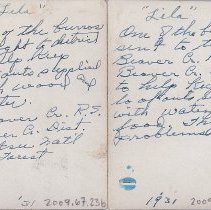 "Lila"
of the burros
to district
help keep
supplied
wood and
Beaver Cr. R.S.
Cr. Dist.
Nat'l
Forest
31 2009.67.23b
"Lila"
One of the b
sent to the
Beaver Cr. R
Beaver Cr.
to help kee
with wate
food. Th
problems
1931 2009